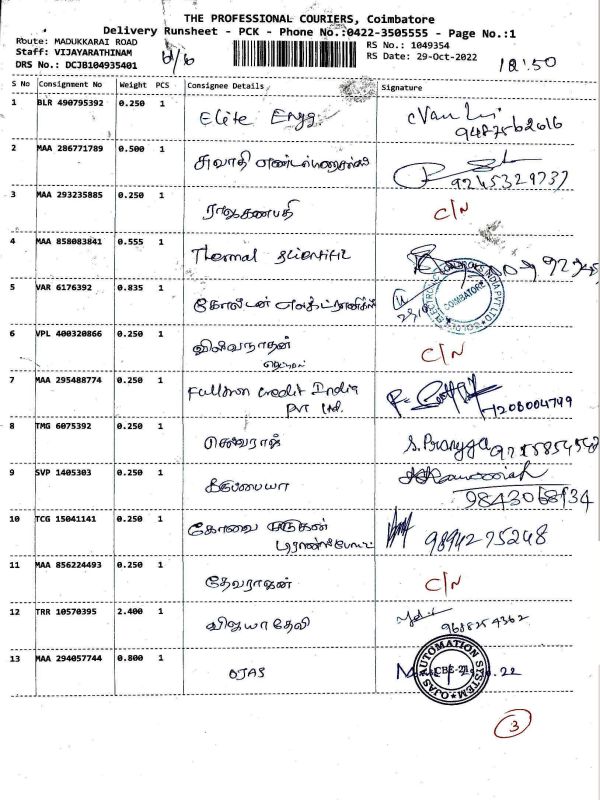 THE PROFESSIONAL COURIERS, Coimbatore
Delivery Runsheet - PCK - Phone No.:0422-3505555 - Page No.:1
Route: MADUKKARAI ROAD
Staff: VIJAYARATHINAM
DRS No.: DCJB104935401
RS No.: 1049354
RS Date: 29-Oct-2022
12:50
S No Consignment No Weight PCS Consignee Details Signature
1 BLR 490795392 0.250 1 Elite Engg
2 MAA 286771789 0.500 1 சுவாதி
9245329737
3 MAA 293235885 0.250 1 ராஜகணபதி C/N
4 MAA 858083841 0.555 1 Thermal Scientific
5 VAR 6176392 0.835 1 கோல்டன்
COIMBATORE
6 VPL 400320866 0.250 1 விஸ்வநாதன் C/N
7 MAA 295488774 0.250 1 Fullmon Credit India
PVT Ltd.
7208004799
8 TMG 6075392 0.250 1 செல்வராஜ் S. Pranyga
9 SVP 1405303 0.250 1 கருப்பையா
9843068134
10 TCG 15041141 0.250 1 கோவை முருகன்
9894275248
11 MAA 856224493 0.250 1 தேவராஜன் C/N
12 TRR 10570395 2.400 1 விஜயாதேவி
9688254362
13 MAA 294057744 0.800 1 OJAS
OJAS AUTOMATION SYSTEM
CBE-21
3